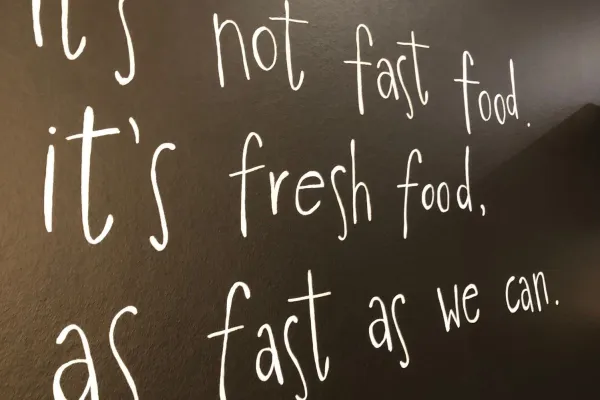 it's not fast food.
it's fresh food,
as fast as we can.